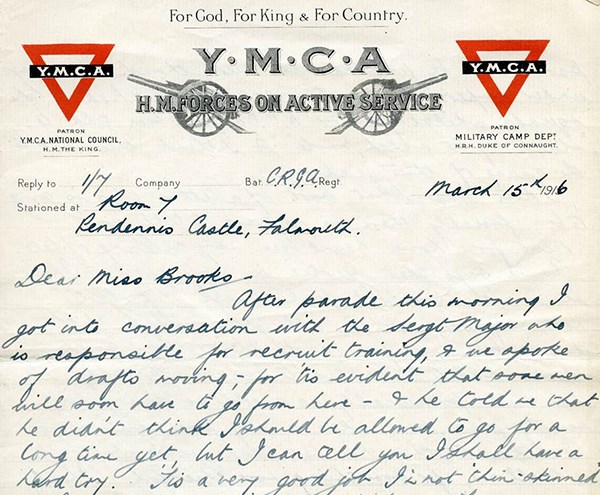 For God, For King & For Country.
Y·M·C·A
H.M. FORCES ON ACTIVE SERVICE
Y.M.C.A.
PATRON
Y.M.C.A. NATIONAL COUNCIL,
H.M. THE KING.
Y.M.C.A.
PATRON
MILITARY CAMP DEPT.
H.R.H. DUKE OF CONNAUGHT.
Reply to 1/7 Company Bat. C.R.G.A. Regt.
March 15th 1916
Stationed at Room 7
Pendennis Castle, Falmouth.
Dear Miss Brooks-
After parade this morning I
got into conversation with the Sergt Major who
is responsible for recruit training, & we spoke
of drafts moving,- for 'tis evident that some men
will soon have to go from here - & he told me that
he didn't think I should be allowed to go for a
long time yet, but I can tell you I shall have a
hard try. 'Tis a very good job I'm not "thin-skinned"